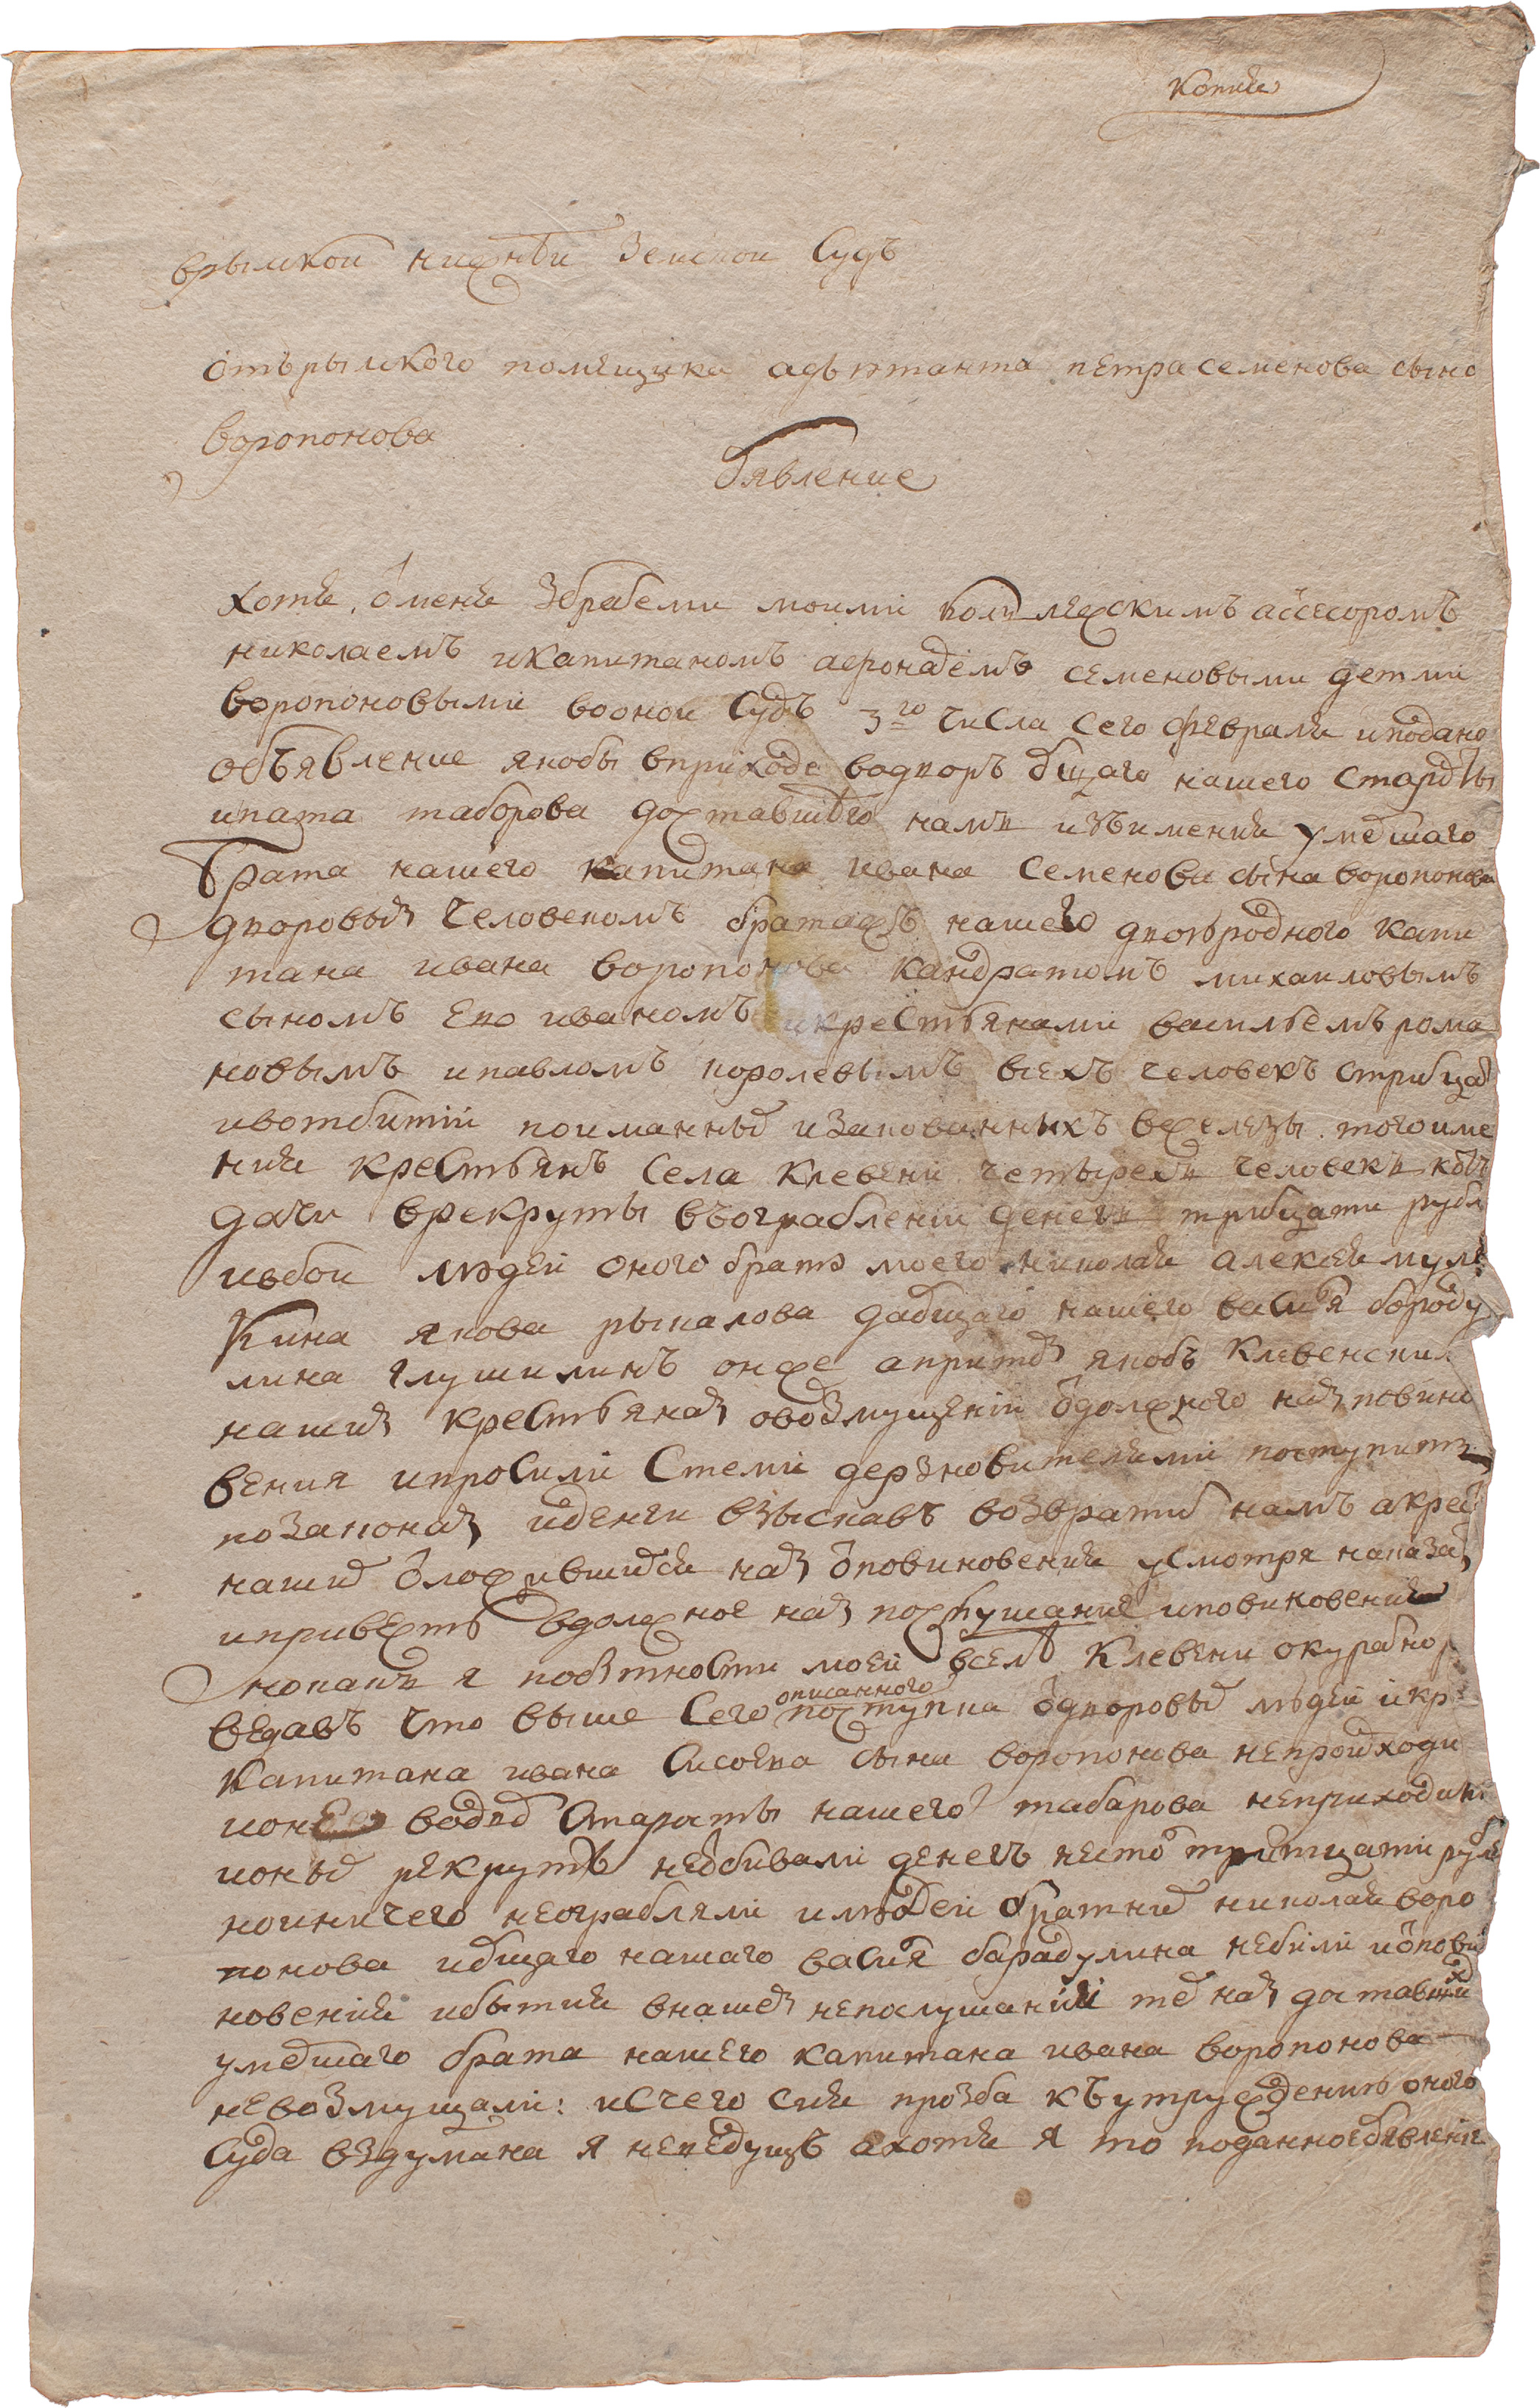 копия
врылской нижней Земской Судъ
отърылского помещика адъютанта петра семенова сына
воропонова
объявление
хотя, отменя Збратеми моими коллежскимъ асесоромъ
николаемъ икапитаномъ афонасемъ семеновыми детми
воропоновыми вооной Судъ 3го числа сего февраля иподано
объявление якобы вприходе водворъ общаго нашего старосты
ипата таборова доставшегося намъ изъимения умершаго
брата нашего капитана ивана семенова сына воропонова
дворовым человекомъ брата нашего двоюродного капи
тана ивана воропонова кандратомъ михаиловымъ
сыномъ Ево иваномъ икрестьянами васильемъ рома
новымъ ипавломъ королевымъ всехъ человекъ стритцать
ивотбитии поиманныхъ изакованныхъ вжелезы тогоиме
ния крестьянъ села клевени четырехъ человекъ кот
дачи врекруты въограблении денегъ тритцати рубл
ивбои людей оного брата моего николая алексея мул
кина якова рыкалова даобщаго нашего василя бороду
лина глушилинъ онже апритомъ якобъ клевенским
нашим крестьяном овозмущении одолжного нам повино
вения ипросили стеми дерзновителями поступить
позаконам иденги взыскавъ возвратить намъ акрес
наших отложившихся нам оповиновения усмотря наказат
ипривесть вдолжное нам послушание иповиновение
нокакъ я побытности моей вселе клевени окуратно
ведавъ что выше сего описанного поступка одворовых людей икр
капитана ивана сысоева сына воропонова непроисходи
ионые водворъ старосты нашего табарова неприходили
ионых рекрутъ неотбивали денегъ нисто тритцати рубл
ноиничего неограбляли илюдей братних николая воро
понова иобщаго нашаго василя барадулина небили иопови
новении ибытии внашем непослушании тех нам доставших
умершаго брата нашего капитана ивана воропонова
невозмущали: исчего сия прозба къутруждению оного
суда вздумана я неведущъ ахотя я то поданное объявление